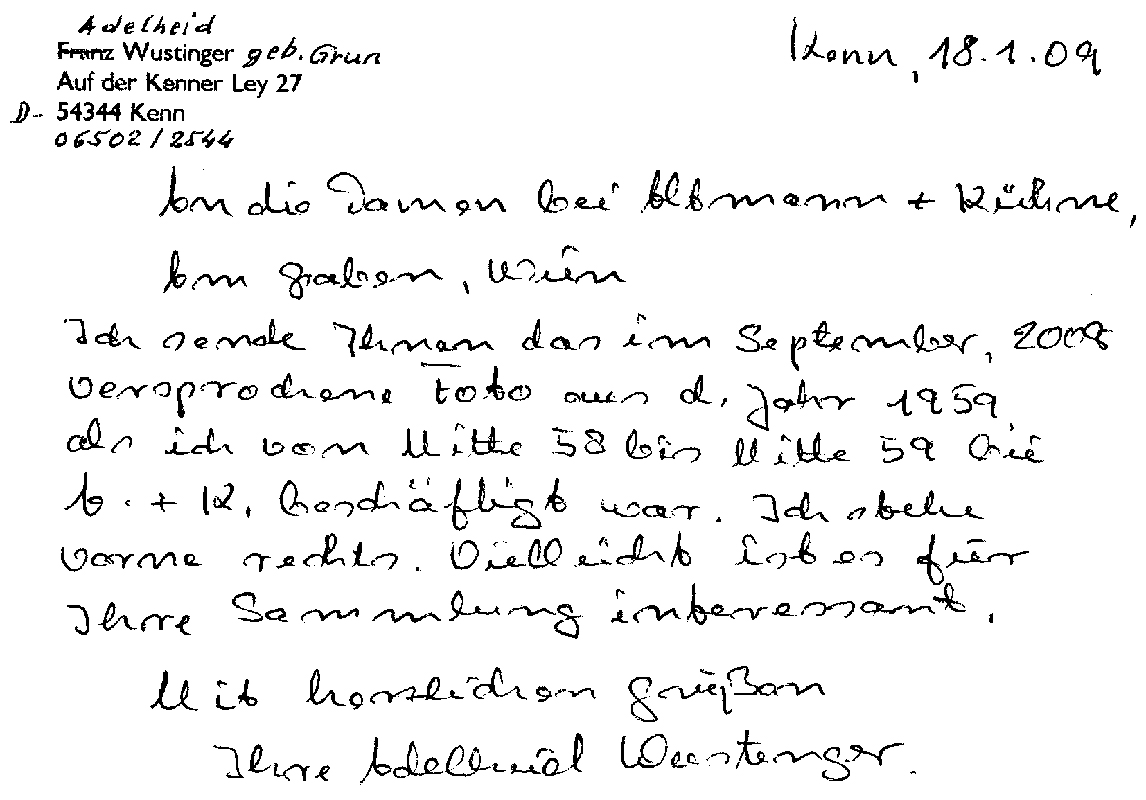 Adelheid
Franz Wustinger geb. Grun
Auf der Kenner Ley 27
D- 54344 Kenn
06502/2544
Kenn, 18.1.09
An die Damen bei Altmann + Kühne,
Am Graben, Wien
Ich sende Ihnen das im September, 2008
versprochene Foto aus d. Jahr 1959,
als ich von Mitte 58 bis Mitte 59 bei
A. + K. beschäftigt war. Ich stehe
vorne rechts. Vielleicht ist es für
Ihre Sammlung interessant.
Mit herzlichen Grüßen
Ihre Adelheid Wustinger.